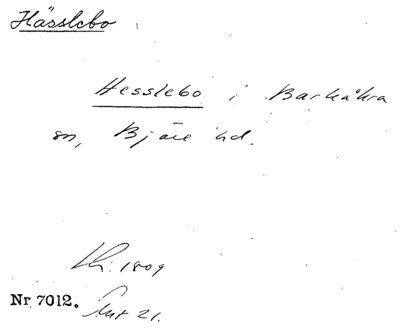 Hässlebo
Hesslebo i Barkåkra
sn, Bjäre hd.
1809
Nr 7012.
21.